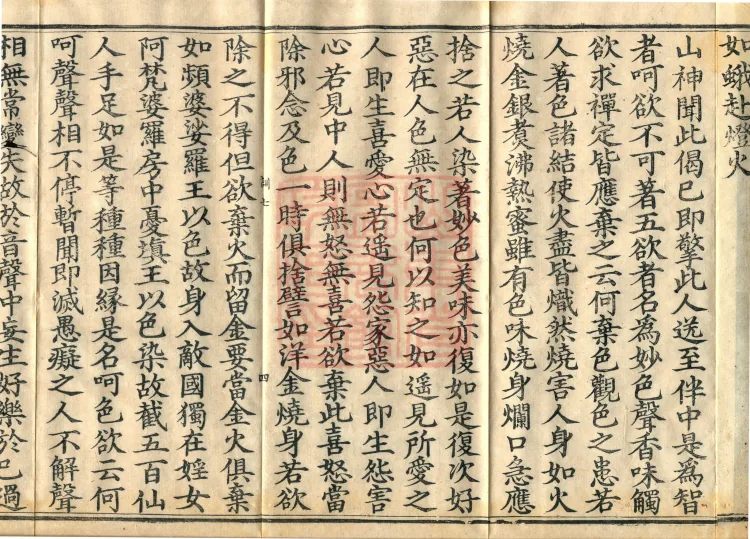 如蛾赴燈火
山神聞此偈已即擎此人送至伴中是為智
者呵欲不可著五欲者名為妙色聲香味觸
欲求禪定皆應棄之云何棄色觀色之患若
人著色諸結使火盡皆熾然燒害人身如火
燒金銀煑沸熱蜜雖有色味燒身爛口急應
捨之若人染著妙色美味亦復如是復次好
惡在人色無定也何以知之如遥見所愛之
人即生喜愛心若遥見怨家惡人即生怨害
心若見中人則無怒無喜若欲棄此喜怒當
除邪念及色一時俱捨譬如洋金燒身若欲
訓七 四
除之不得但欲棄火而留金要當金火俱棄
如頻婆娑羅王以色故身入敵國獨在婬女
阿梵婆羅房中憂塡王以色染故截五百仙
人手足如是等種種因緣是名呵色欲云何
呵聲聲相不停暫聞即滅愚癡之人不解聲
相無常變失故於音聲中妄生好樂於已過